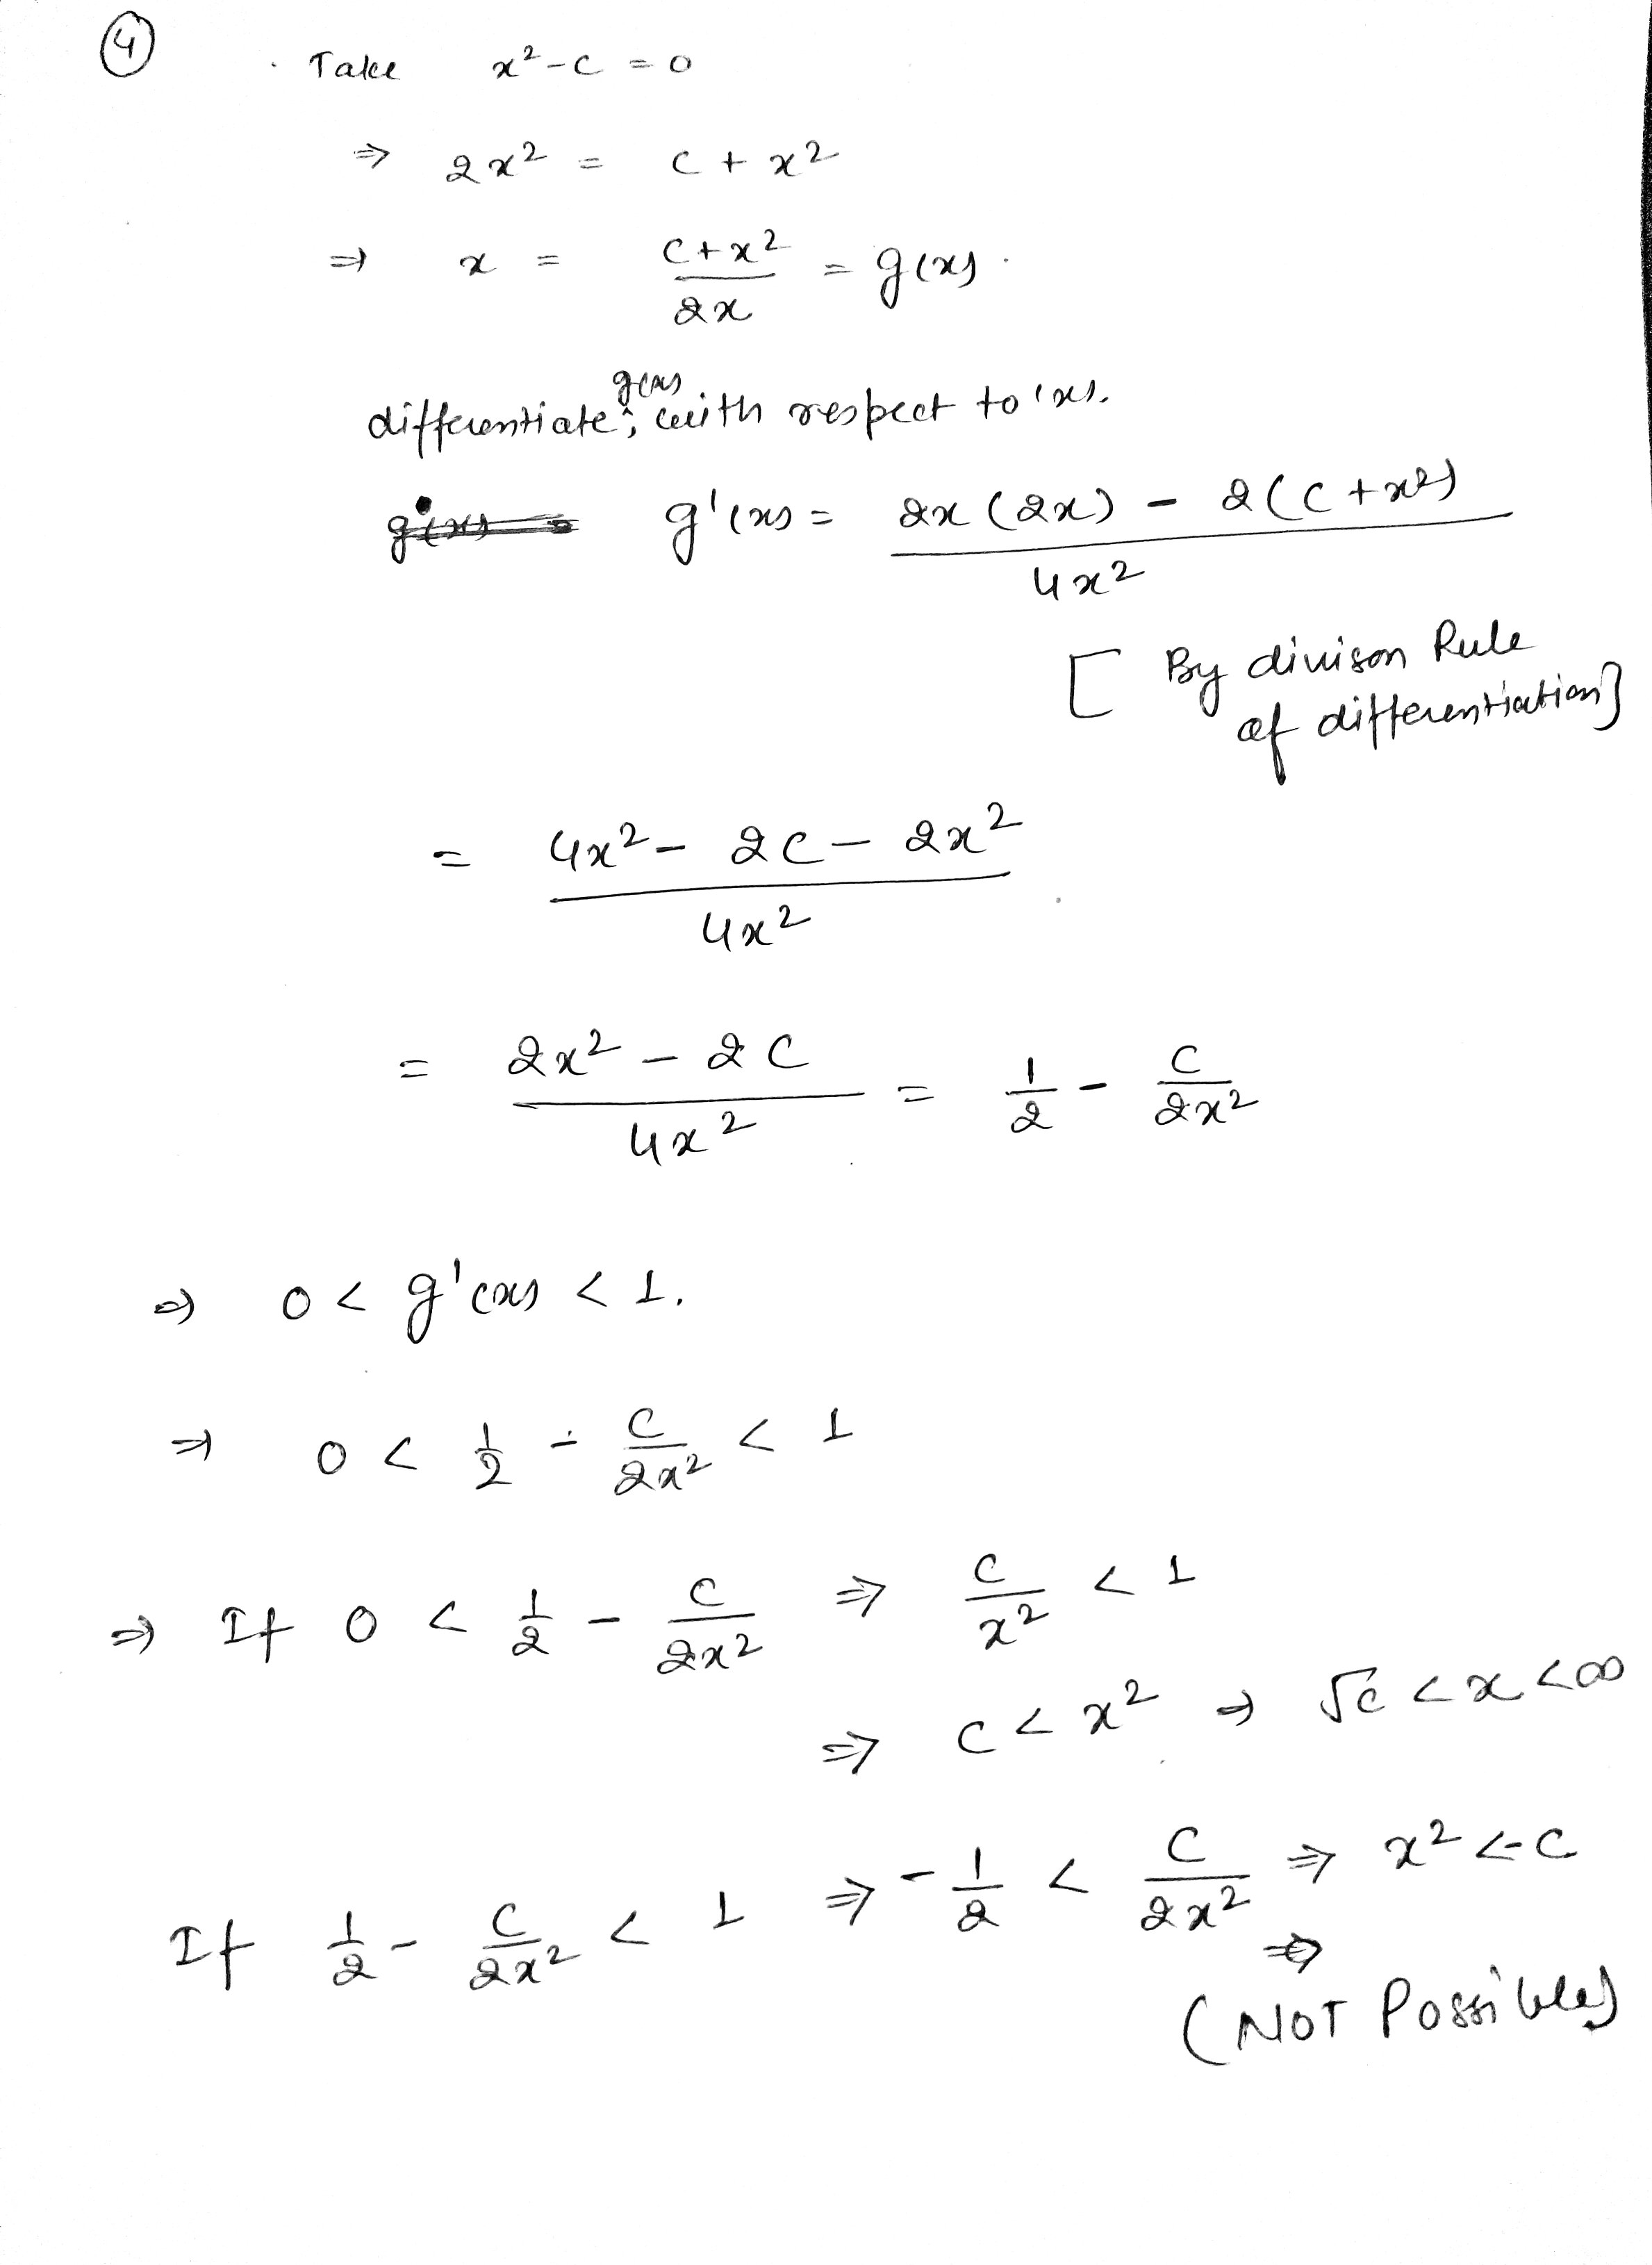 4
Take x² - c = 0
⇒ 2x² = c + x²
⇒ x = (c + x²)/(2x) = g(x).
differentiate g(x), with respect to 'x'.
g'(x) = (2x(2x) - 2(c + x²))/(4x²)
[By divison Rule
of differentiation]
= (4x² - 2c - 2x²)/(4x²)
= (2x² - 2c)/(4x²) = 1/2 - c/(2x²)
⇒ 0 < g'(x) < 1.
⇒ 0 < 1/2 - c/(2x²) < 1
⇒ If 0 < 1/2 - c/(2x²) ⇒ c/x² < 1
⇒ c < x² ⇒ √c < x < ∞
If 1/2 - c/(2x²) < 1 ⇒ -1/2 < c/(2x²) ⇒ x² < -c
⇒
(NOT Possible)